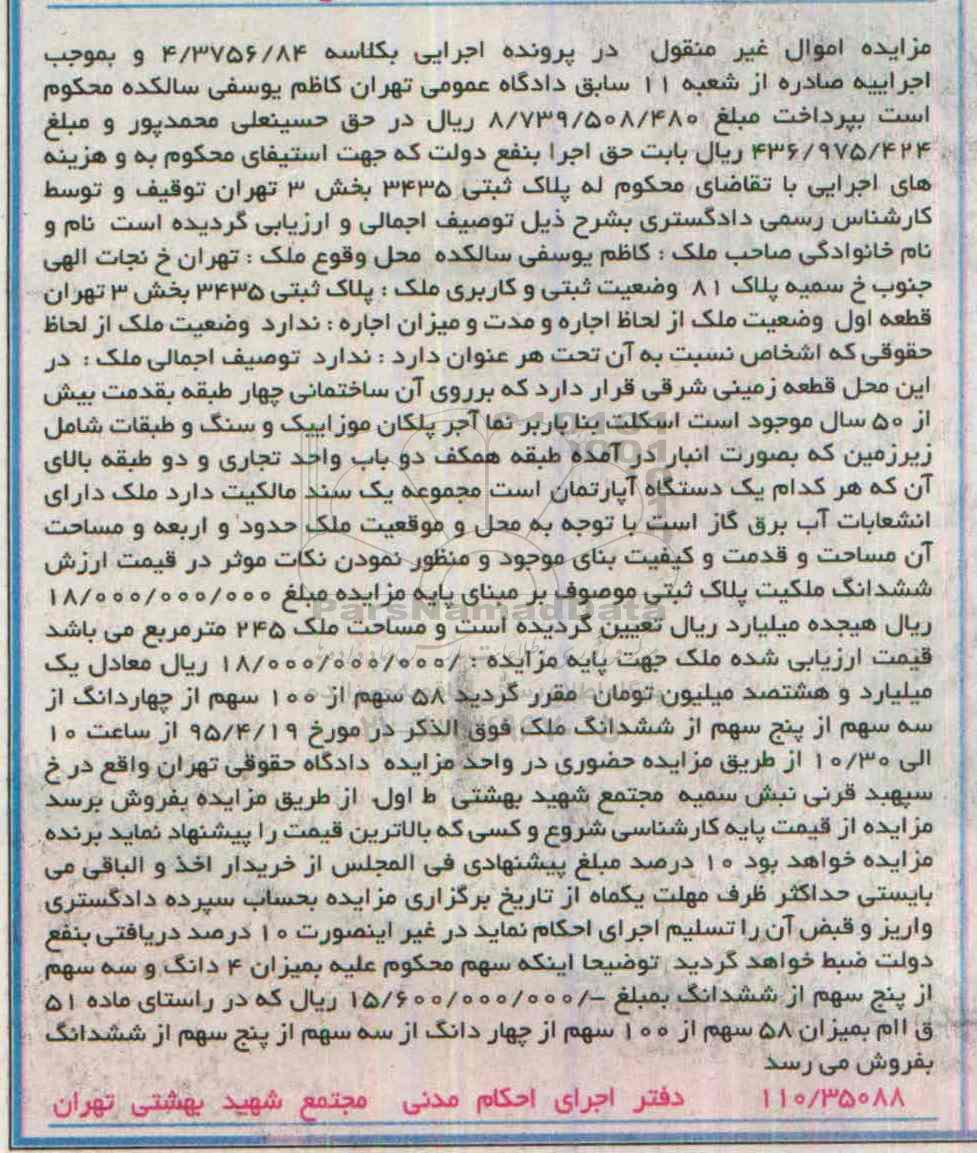 مزایده اموال غیر منقول در پرونده اجرایی بکلاسه ۴/۳۷۵۶/۸۴ و بموجب
اجراییه صادره از شعبه ۱۱ سابق دادگاه عمومی تهران کاظم یوسفی سالکده محکوم
است بپرداخت مبلغ ۸/۷۳۹/۵۰۸/۴۸۰ ریال در حق حسینعلی محمدپور و مبلغ
۴۳۶/۹۷۵/۴۲۴ ریال بابت حق اجرا بنفع دولت که جهت استیفای محکوم به و هزینه
های اجرایی با تقاضای محکوم له پلاک ثبتی ۳۴۳۵ بخش ۳ تهران توقیف و توسط
کارشناس رسمی دادگستری بشرح ذیل توصیف اجمالی و ارزیابی گردیده است نام و
نام خانوادگی صاحب ملک : کاظم یوسفی سالکده محل وقوع ملک : تهران خ نجات الهی
جنوب خ سمیه پلاک ۸۱ وضعیت ثبتی و کاربری ملک : پلاک ثبتی ۳۴۳۵ بخش ۳ تهران
قطعه اول وضعیت ملک از لحاظ اجاره و مدت و میزان اجاره : ندارد وضعیت ملک از لحاظ
حقوقی که اشخاص نسبت به آن تحت هر عنوان دارد : ندارد توصیف اجمالی ملک : در
این محل قطعه زمینی شرقی قرار دارد که برروی آن ساختمانی چهار طبقه بقدمت بیش
از ۵۰ سال موجود است اسکلت بنا باربر نما آجر پلکان موزاییک و سنگ و طبقات شامل
زیرزمین که بصورت انبار در آمده طبقه همکف دو باب واحد تجاری و دو طبقه بالای
آن که هر کدام یک دستگاه آپارتمان است مجموعه یک سند مالکیت دارد ملک دارای
انشعابات آب برق گاز است با توجه به محل و موقعیت ملک حدود و اربعه و مساحت
آن مساحت و قدمت و کیفیت بنای موجود و منظور نمودن نکات موثر در قیمت ارزش
ششدانگ ملکیت پلاک ثبتی موصوف بر مبنای پایه مزایده مبلغ ۱۸/۰۰۰/۰۰۰/۰۰۰
ParsNamadData
ریال هیجده میلیارد ریال تعیین گردیده است و مساحت ملک ۲۴۵ مترمربع می باشد
قیمت ارزیابی شده ملک جهت پایه مزایده : /۱۸/۰۰۰/۰۰۰/۰۰۰ ریال معادل یک
میلیارد و هشتصد میلیون تومان مقرر گردید ۵۸ سهم از ۱۰۰ سهم از چهاردانگ از
سه سهم از پنج سهم از ششدانگ ملک فوق الذکر در مورخ ۹۵/۴/۱۹ از ساعت ۱۰
الی ۱۰/۳۰ از طریق مزایده حضوری در واحد مزایده دادگاه حقوقی تهران واقع در خ
سپهبد قرنی نبش سمیه مجتمع شهید بهشتی ط اول از طریق مزایده بفروش برسد
مزایده از قیمت پایه کارشناسی شروع و کسی که بالاترین قیمت را پیشنهاد نماید برنده
مزایده خواهد بود ۱۰ درصد مبلغ پیشنهادی فی المجلس از خریدار اخذ و الباقی می
بایستی حداکثر ظرف مهلت یکماه از تاریخ برگزاری مزایده بحساب سپرده دادگستری
واریز و قبض آن را تسلیم اجرای احکام نماید در غیر اینصورت ۱۰ درصد دریافتی بنفع
دولت ضبط خواهد گردید توضیحا اینکه سهم محکوم علیه بمیزان ۴ دانگ و سه سهم
از پنج سهم از ششدانگ بمبلغ -/۱۵/۶۰۰/۰۰۰/۰۰۰ ریال که در راستای ماده ۵۱
ق اام بمیزان ۵۸ سهم از ۱۰۰ سهم از چهار دانگ از سه سهم از پنج سهم از ششدانگ
بفروش می رسد
۱۱۰/۳۵۰۸۸ دفتر اجرای احکام مدنی مجتمع شهید بهشتی تهران